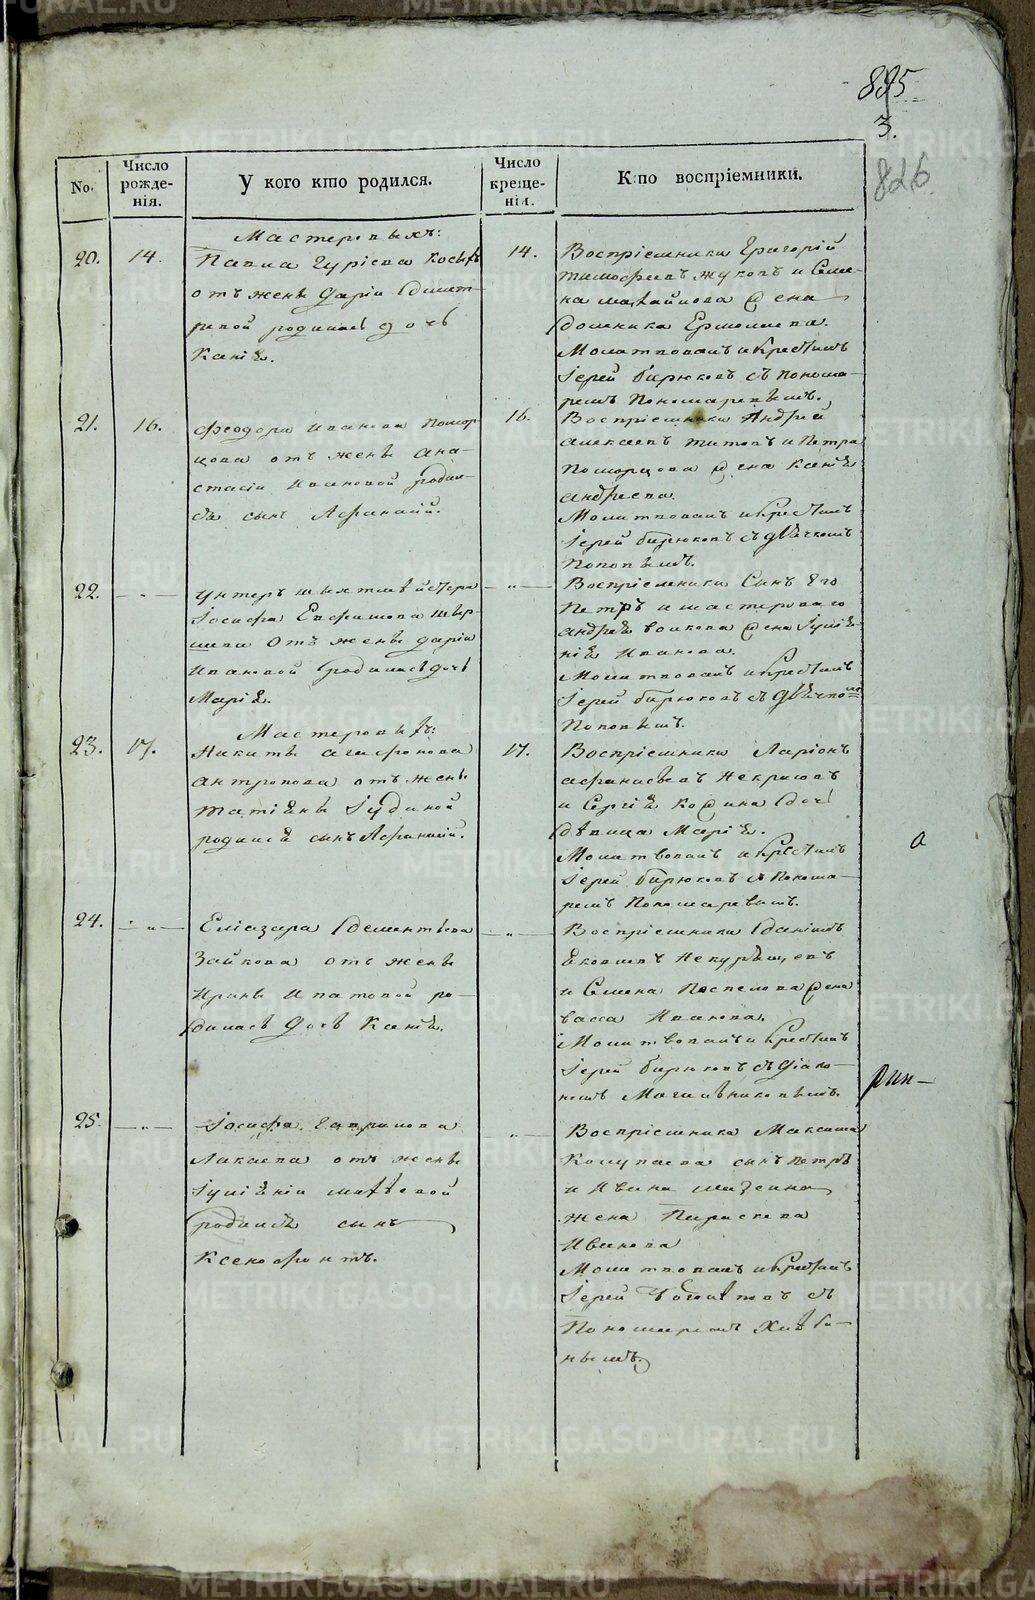 895
3.
826
No.
Число рожде-нія.
У кого кто родился.
Число креще-нія.
Кто воспріемники.
Мастеровыхъ:
20. 14.
Павла Гуріева Косыхъ
отъ жены Даріи Димит-
ревой родилась дочь
Ксенія.
14.
Воспріемники Григорій
Тимофеевъ Жуковъ и Семе-
на Михайлова жена
Домника Ермолаева.
Молитвовалъ и крестилъ
Іерей Бирюковъ съ понома-
ремъ Пономаревымъ.
21. 16.
Феодора Иванова Помор-
цова отъ жены Ана-
стасіи Ивановой родил-
ся сынъ Афанасій.
16.
Воспріемники Андрей
Алексеевъ Титовъ и Петра
Поморцова жена Ксенія
Андреева.
Молитвовалъ и крестилъ
Іерей Бирюковъ съ дьячкомъ
Поповымъ.
22. - " -
Унтеръ шихтмейстера
Іосифа Ефимова
отъ жены Даріи
Ивановой родилась дочь
Марія.
- " -
Воспріемники сынъ его
Петръ и мастероваго
Андрея Волкова жена Іулія-
нія Иванова.
Молитвовалъ и крестилъ
Іерей Бирюковъ съ дьячкомъ
Поповымъ.
Мастеровыхъ:
23. 17.
Никиты Агафонова
Антропова отъ жены
Татіяны Іудиной
родился сынъ Афанасій.
17.
Воспріемники Ларіонъ
Афанасьевъ Некрасовъ
и Сергія дочь
девица Марія.
Молитвовалъ и крестилъ
Іерей Бирюковъ съ понома-
ремъ Пономаревымъ.
а
24. - " -
Еліазара Дементьева
Зайкова отъ жены
Ирины Ипатовой ро-
дилась дочь Ксенія.
- " -
Воспріемники Данилъ
Яковлевъ
и Семена Поспелова жена
Васса Иванова.
Молитвовалъ и крестилъ
Іерей Бирюковъ съ діако-
номъ Могильниковымъ.
25. - " -
Іосифа Гаврилова
Лакаева отъ жены
Іуліяніи Матвевой
родился сынъ
Ксенофонтъ.
- " -
Воспріемники Максима
Колупаева сынъ Петръ
и Ивана
жена Параскева
Иванова
Молитвовалъ и крестилъ
Іерей съ
Пономаремъ Хлеб-
нымъ.
METRIKI.GASO-URAL.RU